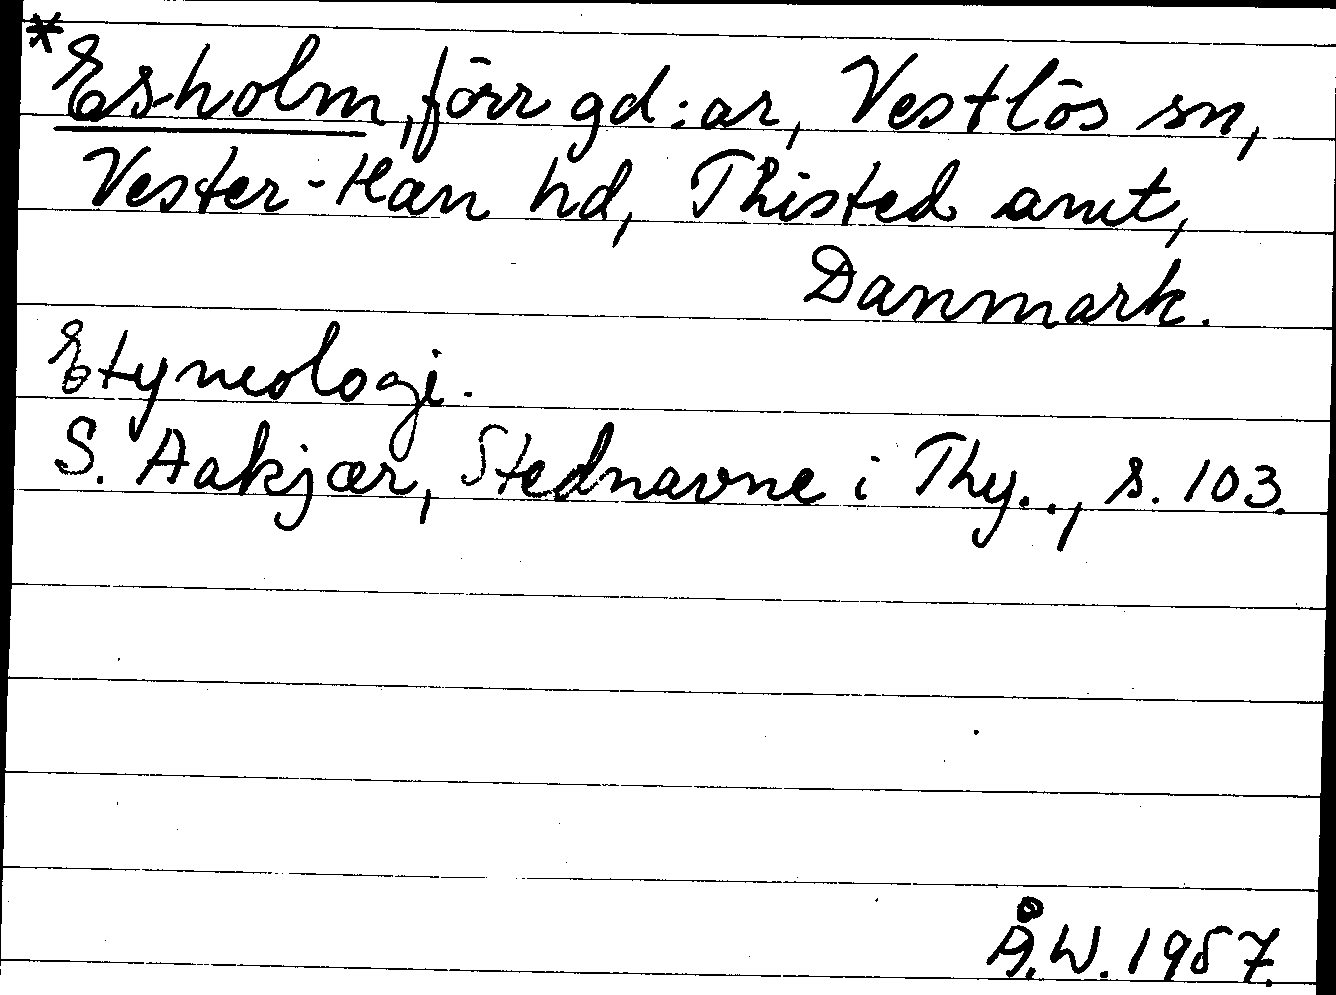 *Esholm, förr gd:ar, Vestlös sn,
Vester-Han hd, Thisted amt,
Danmark.
Etymologi.
S. Aakjær, Stednavne i Thy.., s. 103.
Å.W. 1957.